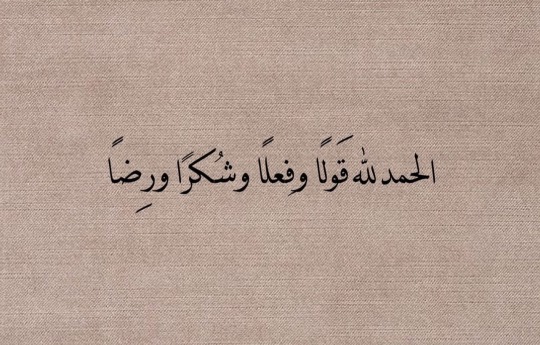 الحمد لله قَولًا وفِعلًا وشُكرًا ورِضاً